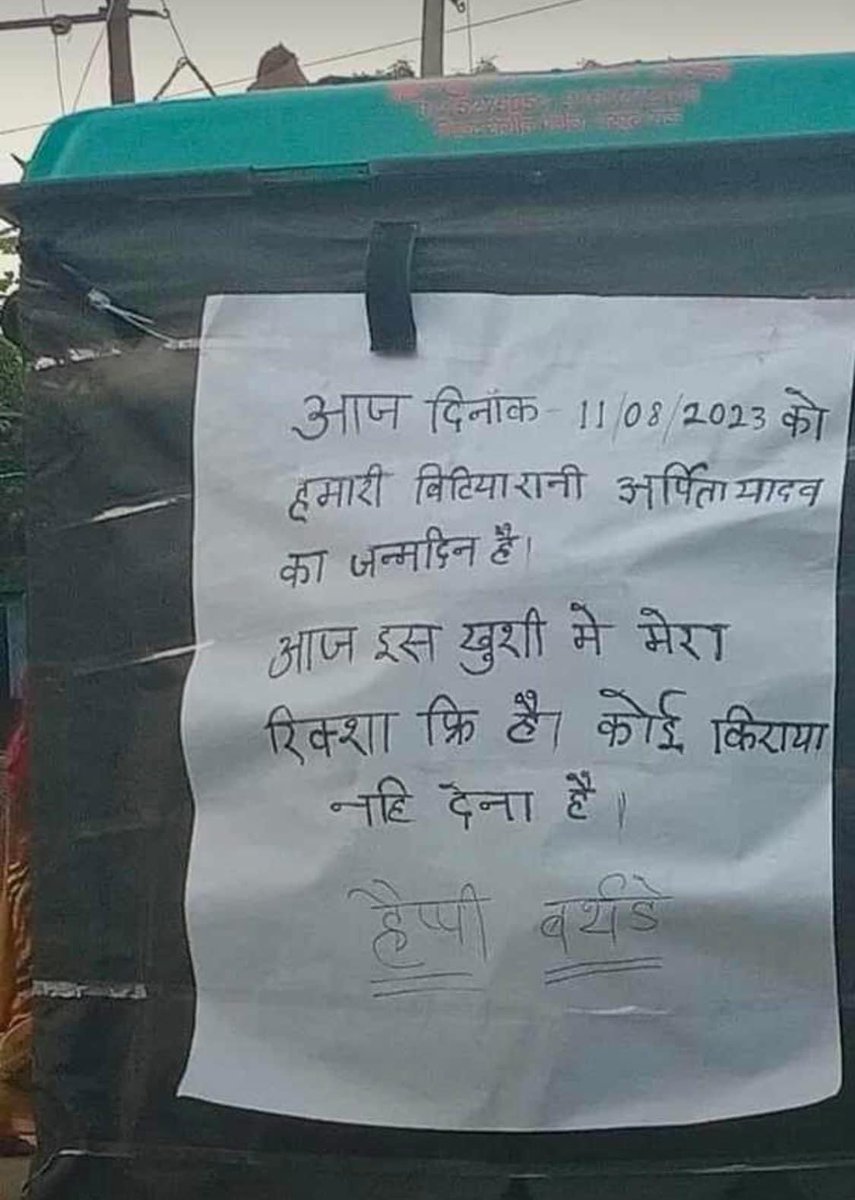 आज दिनांक - 11/08/2023 को
हमारी बिटियारानी अर्पिता यादव
का जन्मदिन है।
आज इस खुशी मे मेरा
रिक्शा फ्रि है। कोई किराया
नहि देना है।
हैप्पी बर्थडे